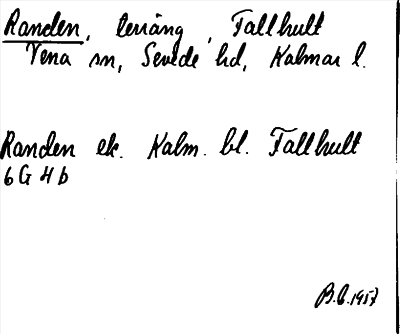 Randen, terräng, Fallhult
Vena sn, Sevede hd, Kalmar l.
Randen ek. Kalm. bl. Fallhult
6 G 4 b
B.C. 1957